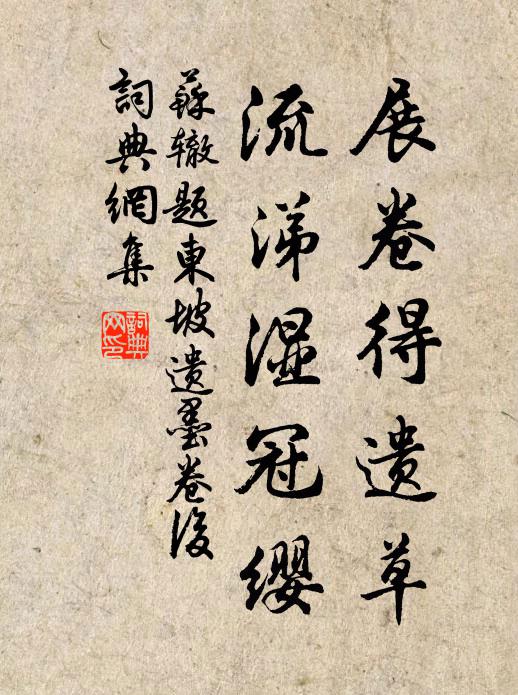 展卷得遗草
流涕湿冠缨
蘇辙题東坡遺墨卷後
詞典網集
詞典网印